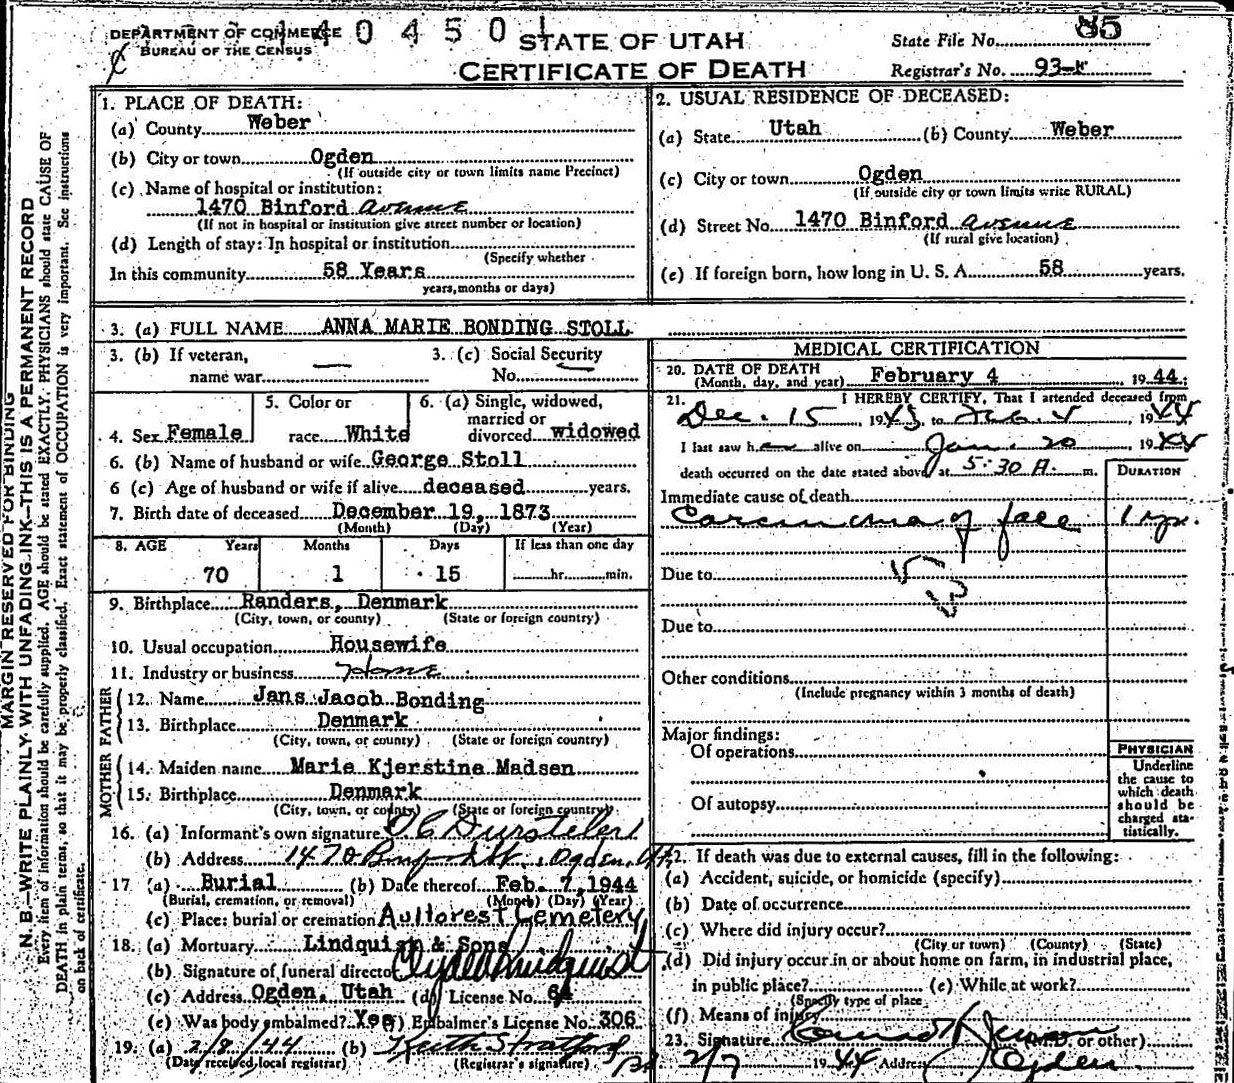 DEPARTMENT OF COMMERCE
BUREAU OF THE CENSUS
1 4 0 4 5 0 1
STATE OF UTAH
CERTIFICATE OF DEATH
State File No. 85
Registrar's No. 93-
MARGIN RESERVED FOR BINDING
N. B.—WRITE PLAINLY WITH UNFADING INK—THIS IS A PERMANENT RECORD
Every item of information should be carefully supplied. AGE should be stated EXACTLY. PHYSICIANS should state CAUSE OF
DEATH in plain terms, so that it may be properly classified. Exact statement of OCCUPATION is very important. See instructions
on back of certificate.
1. PLACE OF DEATH:
(a) County Weber
(b) City or town Ogden
(If outside city or town limits name Precinct)
(c) Name of hospital or institution:
1470 Binford Avenue
(If not in hospital or institution give street number or location)
(d) Length of stay: In hospital or institution
(Specify whether
In this community 58 Years
years, months or days)
2. USUAL RESIDENCE OF DECEASED:
(a) State Utah (b) County Weber
(c) City or town Ogden
(If outside city or town limits write RURAL)
(d) Street No. 1470 Binford Avenue
(If rural give location)
(e) If foreign born, how long in U. S. A. 58 years.
3. (a) FULL NAME ANNA MARIE BONDING STOLL
3. (b) If veteran,
name war —
3. (c) Social Security
No. —
4. Sex Female
5. Color or
race White
6. (a) Single, widowed,
married or
divorced widowed
6. (b) Name of husband or wife George Stoll
6 (c) Age of husband or wife if alive deceased years.
7. Birth date of deceased December 19, 1873
(Month) (Day) (Year)
8. AGE Years Months Days If less than one day
70 1 15 hr. min.
9. Birthplace Randers, Denmark
(City, town, or county) (State or foreign country)
10. Usual occupation Housewife
11. Industry or business Home
FATHER
12. Name Jans Jacob Bonding
13. Birthplace Denmark
(City, town, or county) (State or foreign country)
MOTHER
14. Maiden name Marie Kjerstine Madsen
15. Birthplace Denmark
(City, town, or county) (State or foreign country)
16. (a) Informant's own signature
(b) Address 1470 Binford, Ogden,
17 (a) Burial (b) Date thereof Feb. 7, 1944
(Burial, cremation, or removal) (Month) (Day) (Year)
(c) Place: burial or cremation Aultorest Cemetery
18. (a) Mortuary Lindquist & Sons
(b) Signature of funeral director Clyde Lindquist
(c) Address Ogden, Utah (d) License No. 64
(e) Was body embalmed? Yes (f) Embalmer's License No. 306
19. (a) 2/8/44 (b) Keith Stratford
(Date received local registrar) (Registrar's signature)
MEDICAL CERTIFICATION
20. DATE OF DEATH
(Month, day, and year) February 4 1944
21. I HEREBY CERTIFY, That I attended deceased from
Dec. 15 1943 to Feb. 4 1944
I last saw her alive on Jan. 20 1944
death occurred on the date stated above at 5:30 A. m.
DURATION
Immediate cause of death
Carcinoma of face 1 yr.
Due to
Due to
Other conditions
(Include pregnancy within 3 months of death)
Major findings:
Of operations
Of autopsy
PHYSICIAN
Underline
the cause to
which death
should be
charged sta-
tistically.
22. If death was due to external causes, fill in the following:
(a) Accident, suicide, or homicide (specify)
(b) Date of occurrence
(c) Where did injury occur?
(City or town) (County) (State)
(d) Did injury occur in or about home on farm, in industrial place,
in public place? (e) While at work?
(Specify type of place
(f) Means of injury
23. Signature (M.D. or other)
2/7 1944 Address Ogden